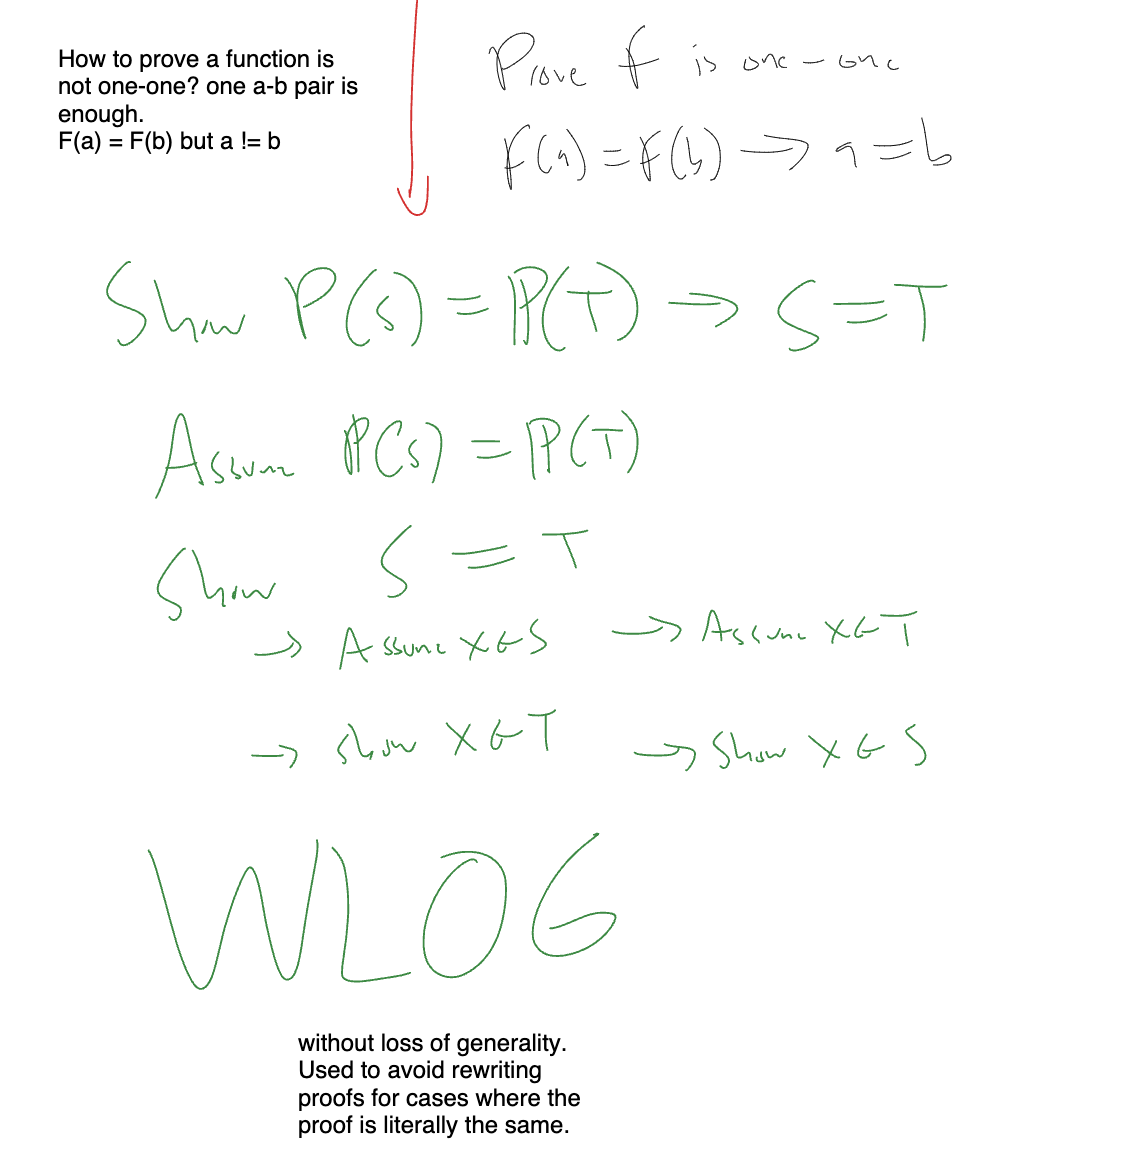 How to prove a function is
not one-one? one a-b pair is
enough.
F(a) = F(b) but a != b
Prove f is one-one
F(a) = F(b) → a = b
Show P(S) = ℙ(T) → S = T
Assume ℙ(S) = ℙ(T)
Show S = T
→ Assume x ∈ S → Assume x ∈ T
→ Show x ∈ T → Show x ∈ S
WLOG
without loss of generality.
Used to avoid rewriting
proofs for cases where the
proof is literally the same.